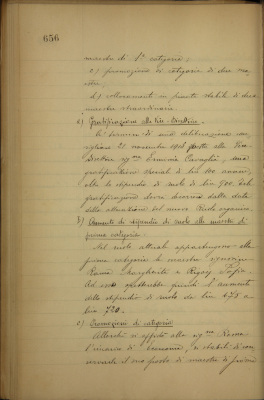 656
maestre di 1ª categoria;
c) promozione di categoria di due maestre;
d) collocamento in pianta stabile di due
maestre straordinarie.
a) Gratificazione alla Vice Direttrice
In termini di una deliberazione consigliare
21 novembre 1903 alla Vice
Direttrice sigª Erminia una
gratificazione annuale di lire 100 annue,
oltre lo stipendio di ruolo di lire 900. Tale
gratificazione dovrà decorrere dalla data
della attuazione del nuovo ruolo organico.
b) Aumento di stipendio di ruolo alle maestre di
prima categoria
Nel ruolo attuale appartengono alla
prima categoria le maestre
Rama Margherita e Sofia.
Ad esse spetterebbe quindi l'aumento
dello stipendio di ruolo da lire 675 a
lire 720.
c) Promozioni di categoria
Allorché si affidò alla sigª Rama
l'incarico di economia, si stabilì di
il suo posto di maestra di giardino